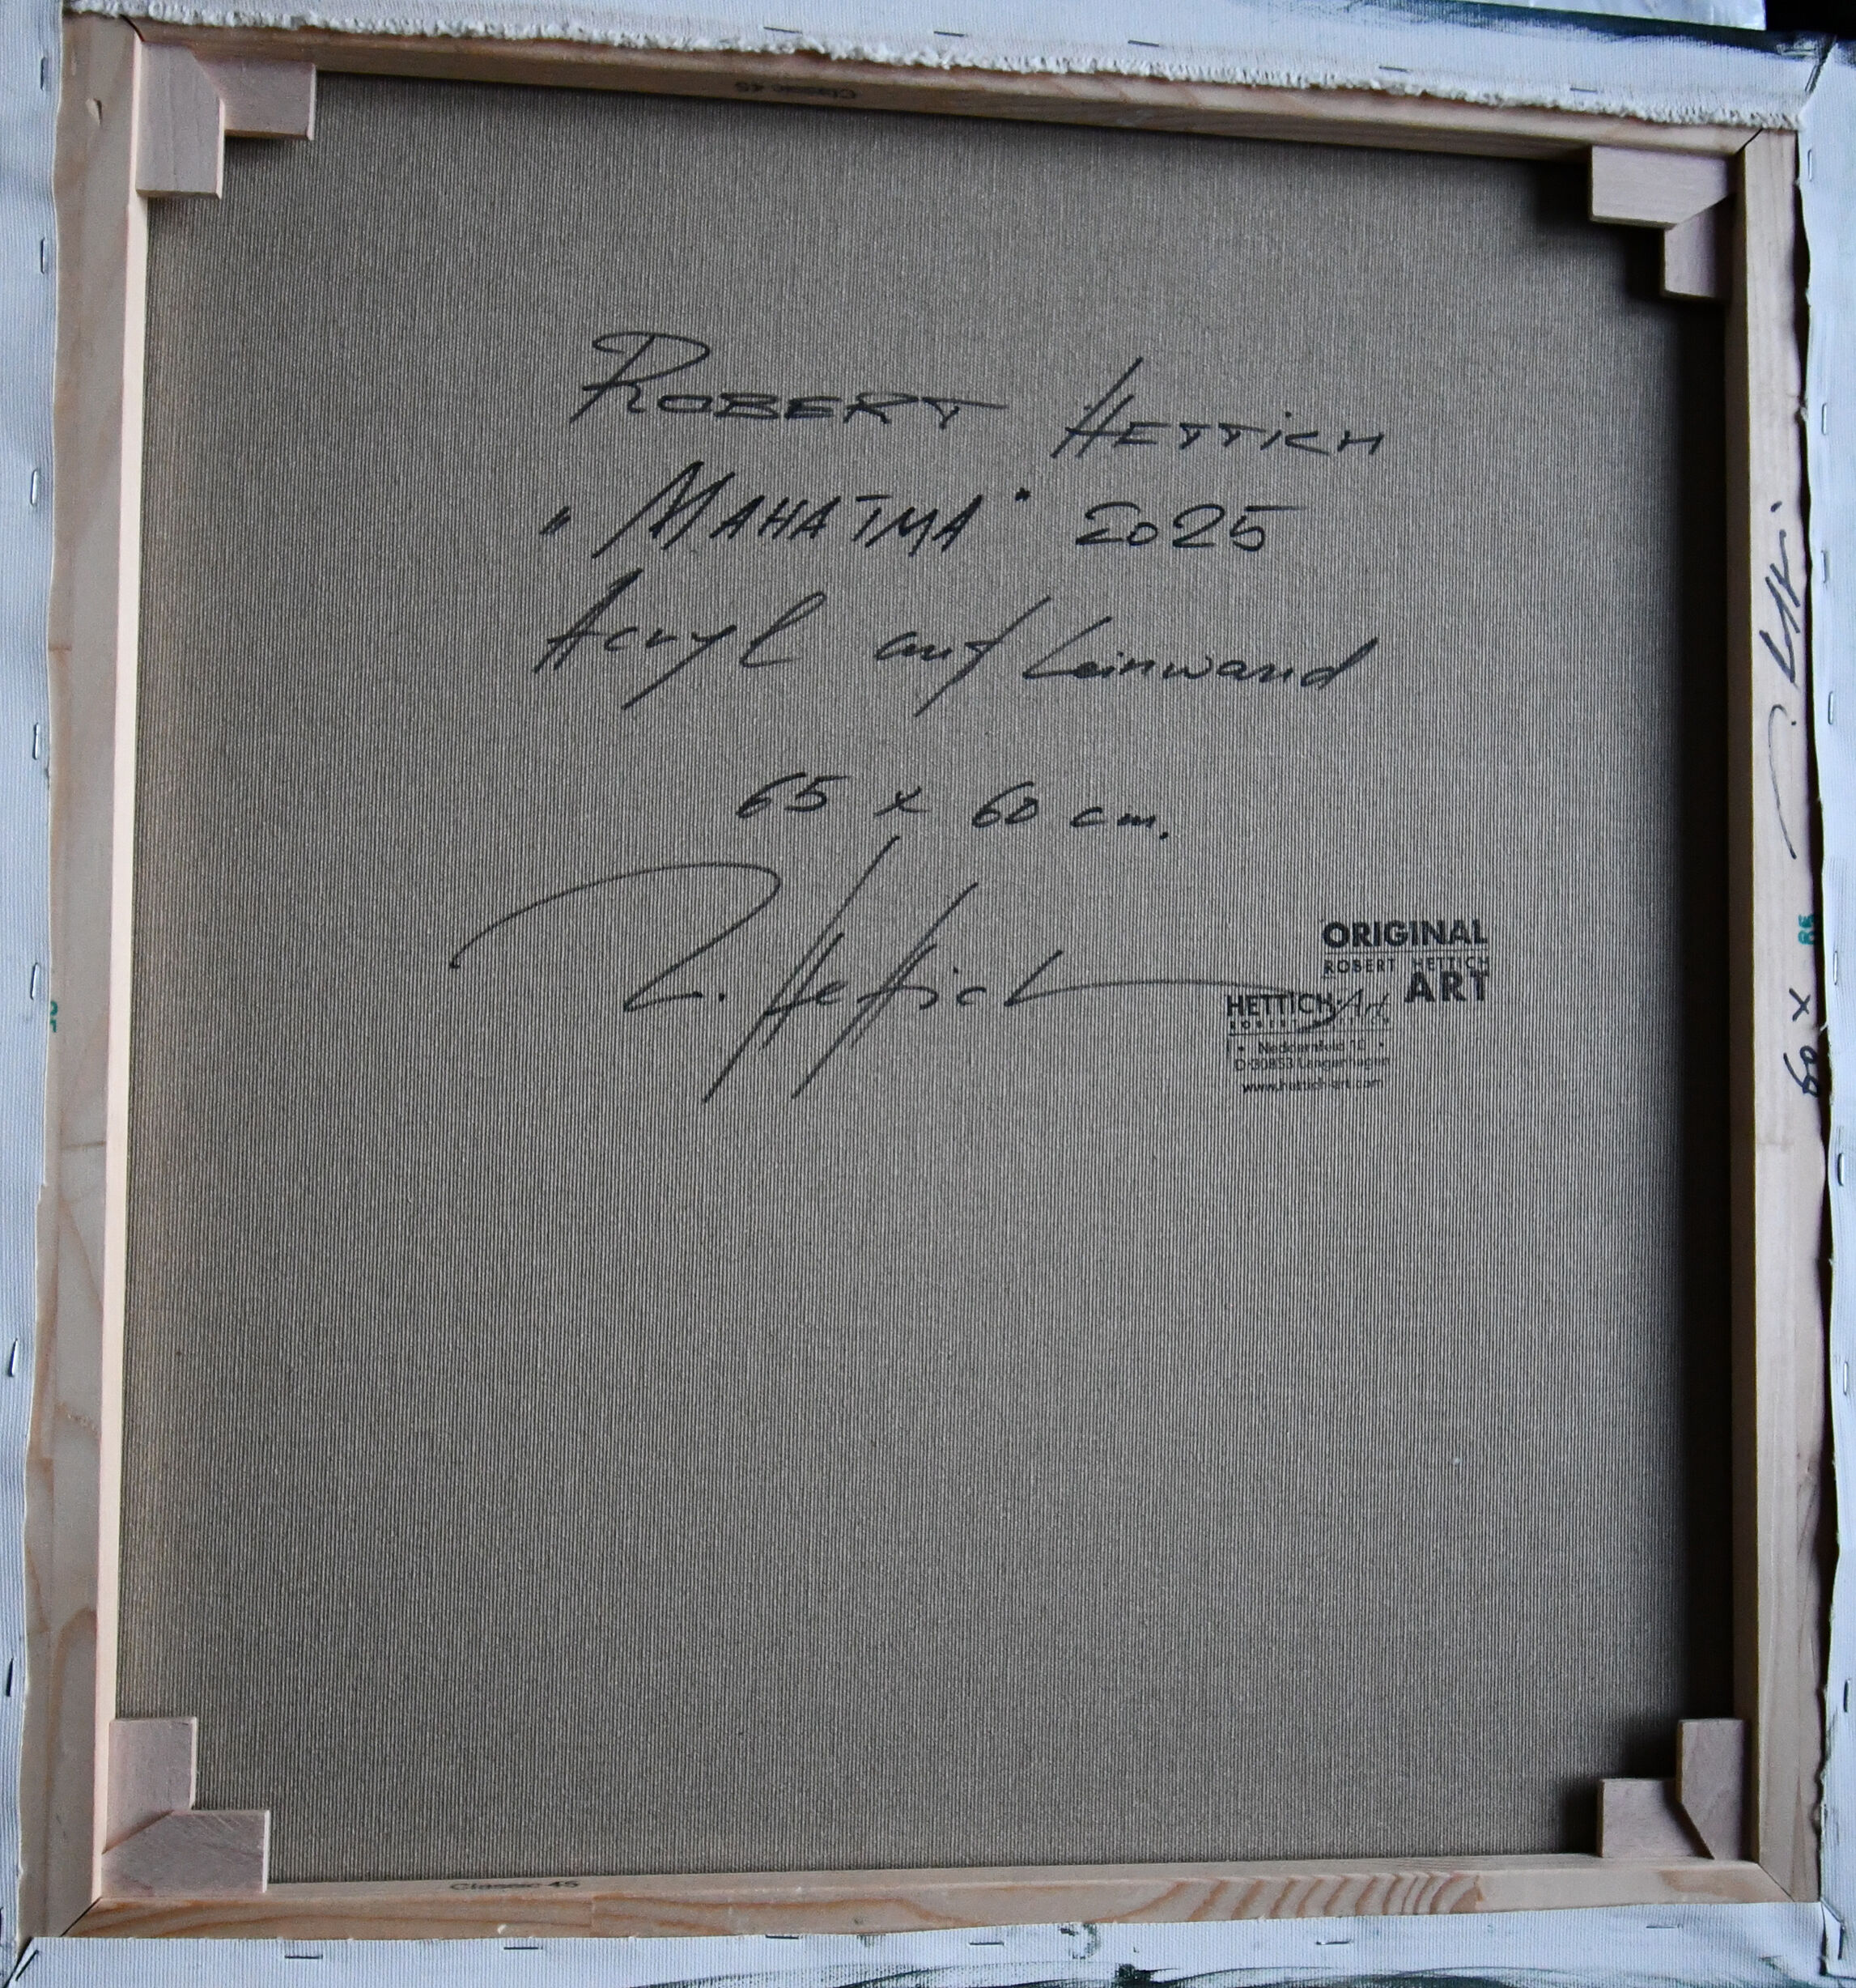 Classic 45
ROBERT HETTICH
„MAHATMA" 2025
Acryl auf Leinwand
65 x 60 cm.
R. Hettich
ORIGINAL
ROBERT HETTICH
ART
HETTICH Art
ROBERT HETTICH
Neddernfeld 10
D-30853 Langenhagen
www.hettich-art.com
60 x
Classic 45